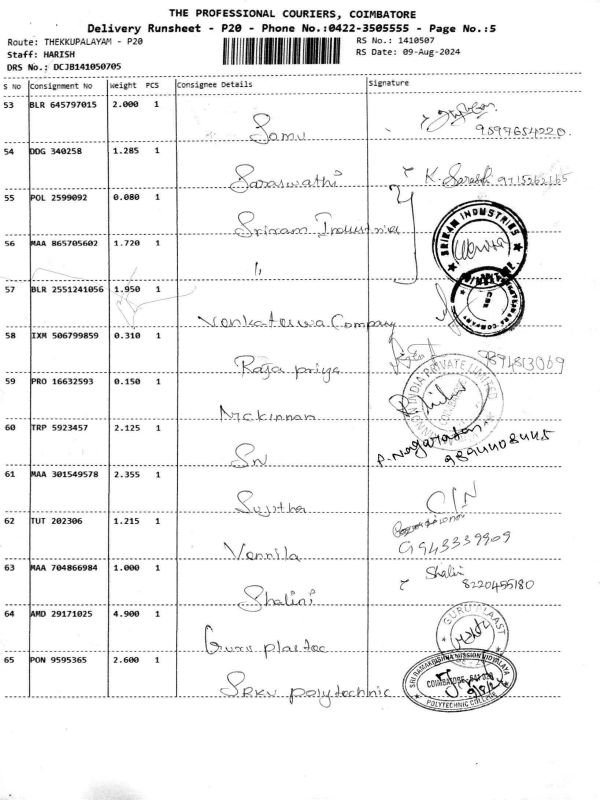 THE PROFESSIONAL COURIERS, COIMBATORE
Delivery Runsheet - P20 - Phone No.:0422-3505555 - Page No.:5
Route: THEKKUPALAYAM - P20
RS No.: 1410507
Staff: HARISH
RS Date: 09-Aug-2024
DRS No.: DCJB141050705
S No Consignment No Weight PCS Consignee Details Signature
53 BLR 645797015 2.000 1
Somu
9597654220.
54 DDG 340258 1.285 1
Saraswathi K. Sarash 9715262165
55 POL 2599092 0.080 1
Sriram Industries
SRIRAM INDUSTRIES
56 MAA 865705602 1.720 1
"
57 BLR 2551241056 1.950 1
Venkateswa Company
58 IXM 506799859 0.310 1
Raja priya
59 PRO 16632593 0.150 1
INDIA PRIVATE LIMITED
Mckinnan
60 TRP 5923457 2.125 1
P. Nagarajan.
Sri
61 MAA 301549578 2.355 1
Sujitha C/N
62 TUT 202306 1.215 1
Vennila 9943339909
63 MAA 704866984 1.000 1
Shalini
Shalini
8220455180
64 AMD 29171025 4.900 1
GURU PLAAST
Guru plastec
65 PON 9595365 2.600 1
SRI RAMAKRISHNA MISSION VIDYALAYA
POLYTECHNIC COLLEGE
SRKV polytechnic